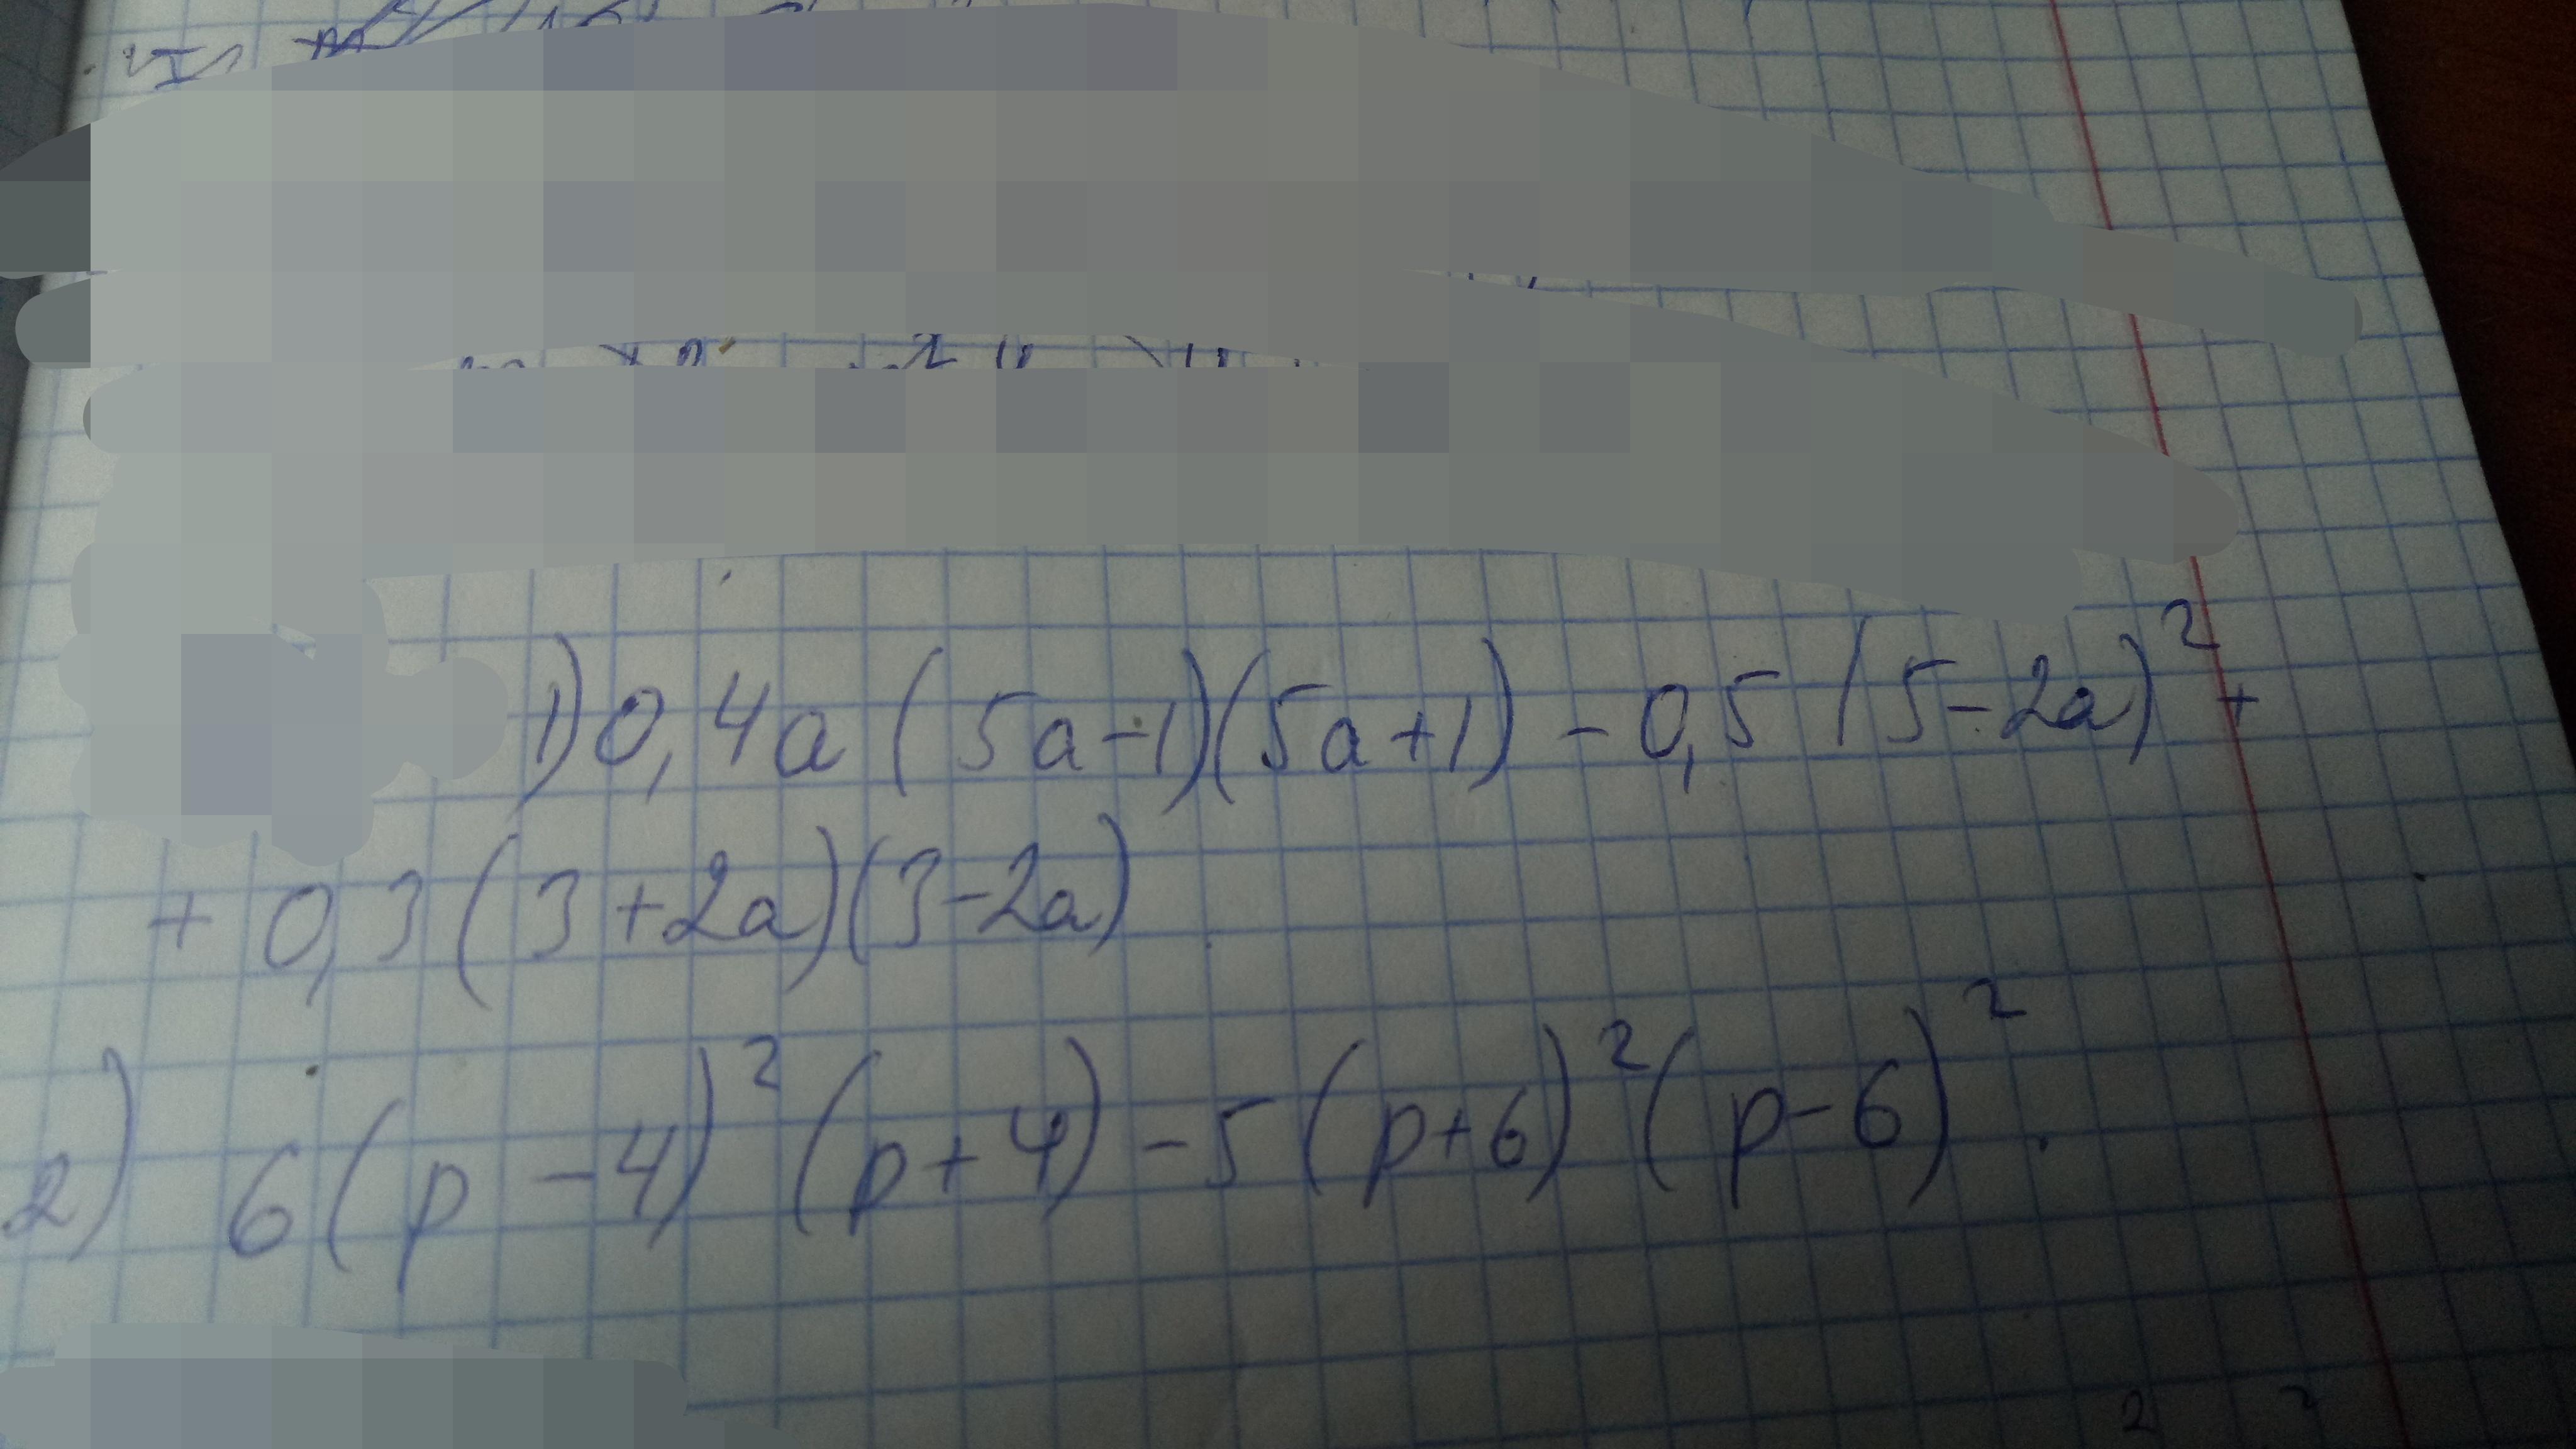 1) 0,4a (5a-1)(5a+1) - 0,5 (5-2a)² +
+ 0,3 (3+2a)(3-2a)
2) 6(p-4)² (p+4) - 5 (p+6)² (p-6)²